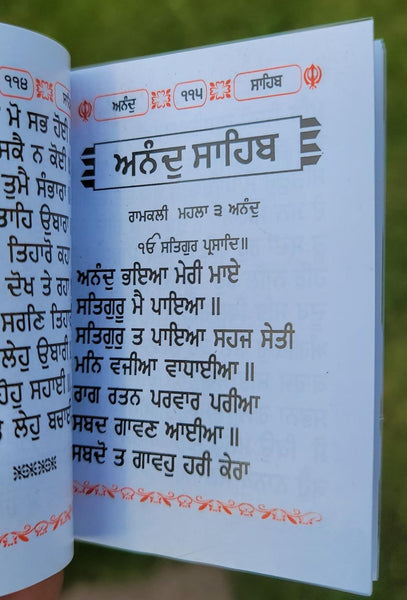 ੧੧੪
ਮੋ ਸਭ ਹੋਈ
ਸਕੈ ਨ ਕੋਈ
ਤੁਮੈ ਸੰਭਾਰਾ
ਤਾਹਿ ਉਬਾਰਾ
ਤਿਹਾਰੋ ਕਹਾ
ਦੋਖ ਤੇ ਰਹਾ
ਸਰਣਿ ਤਿਹਾ
ਲੇਹੁ ਉਬਾਰੀ
ਸਹਾਈ
ਲੇਹੁ ਬਚਾ
ਅਨੰਦੁ ੧੧੫ ਸਾਹਿਬ
ਅਨੰਦੁ ਸਾਹਿਬ
ਰਾਮਕਲੀ ਮਹਲਾ ੩ ਅਨੰਦੁ
ੴ ਸਤਿਗੁਰ ਪ੍ਰਸਾਦਿ॥
ਅਨੰਦੁ ਭਇਆ ਮੇਰੀ ਮਾਏ
ਸਤਿਗੁਰੂ ਮੈ ਪਾਇਆ॥
ਸਤਿਗੁਰੁ ਤ ਪਾਇਆ ਸਹਜ ਸੇਤੀ
ਮਨਿ ਵਜੀਆ ਵਾਧਾਈਆ॥
ਰਾਗ ਰਤਨ ਪਰਵਾਰ ਪਰੀਆ
ਸਬਦ ਗਾਵਣ ਆਈਆ॥
ਸਬਦੋ ਤ ਗਾਵਹੁ ਹਰੀ ਕੇਰਾ